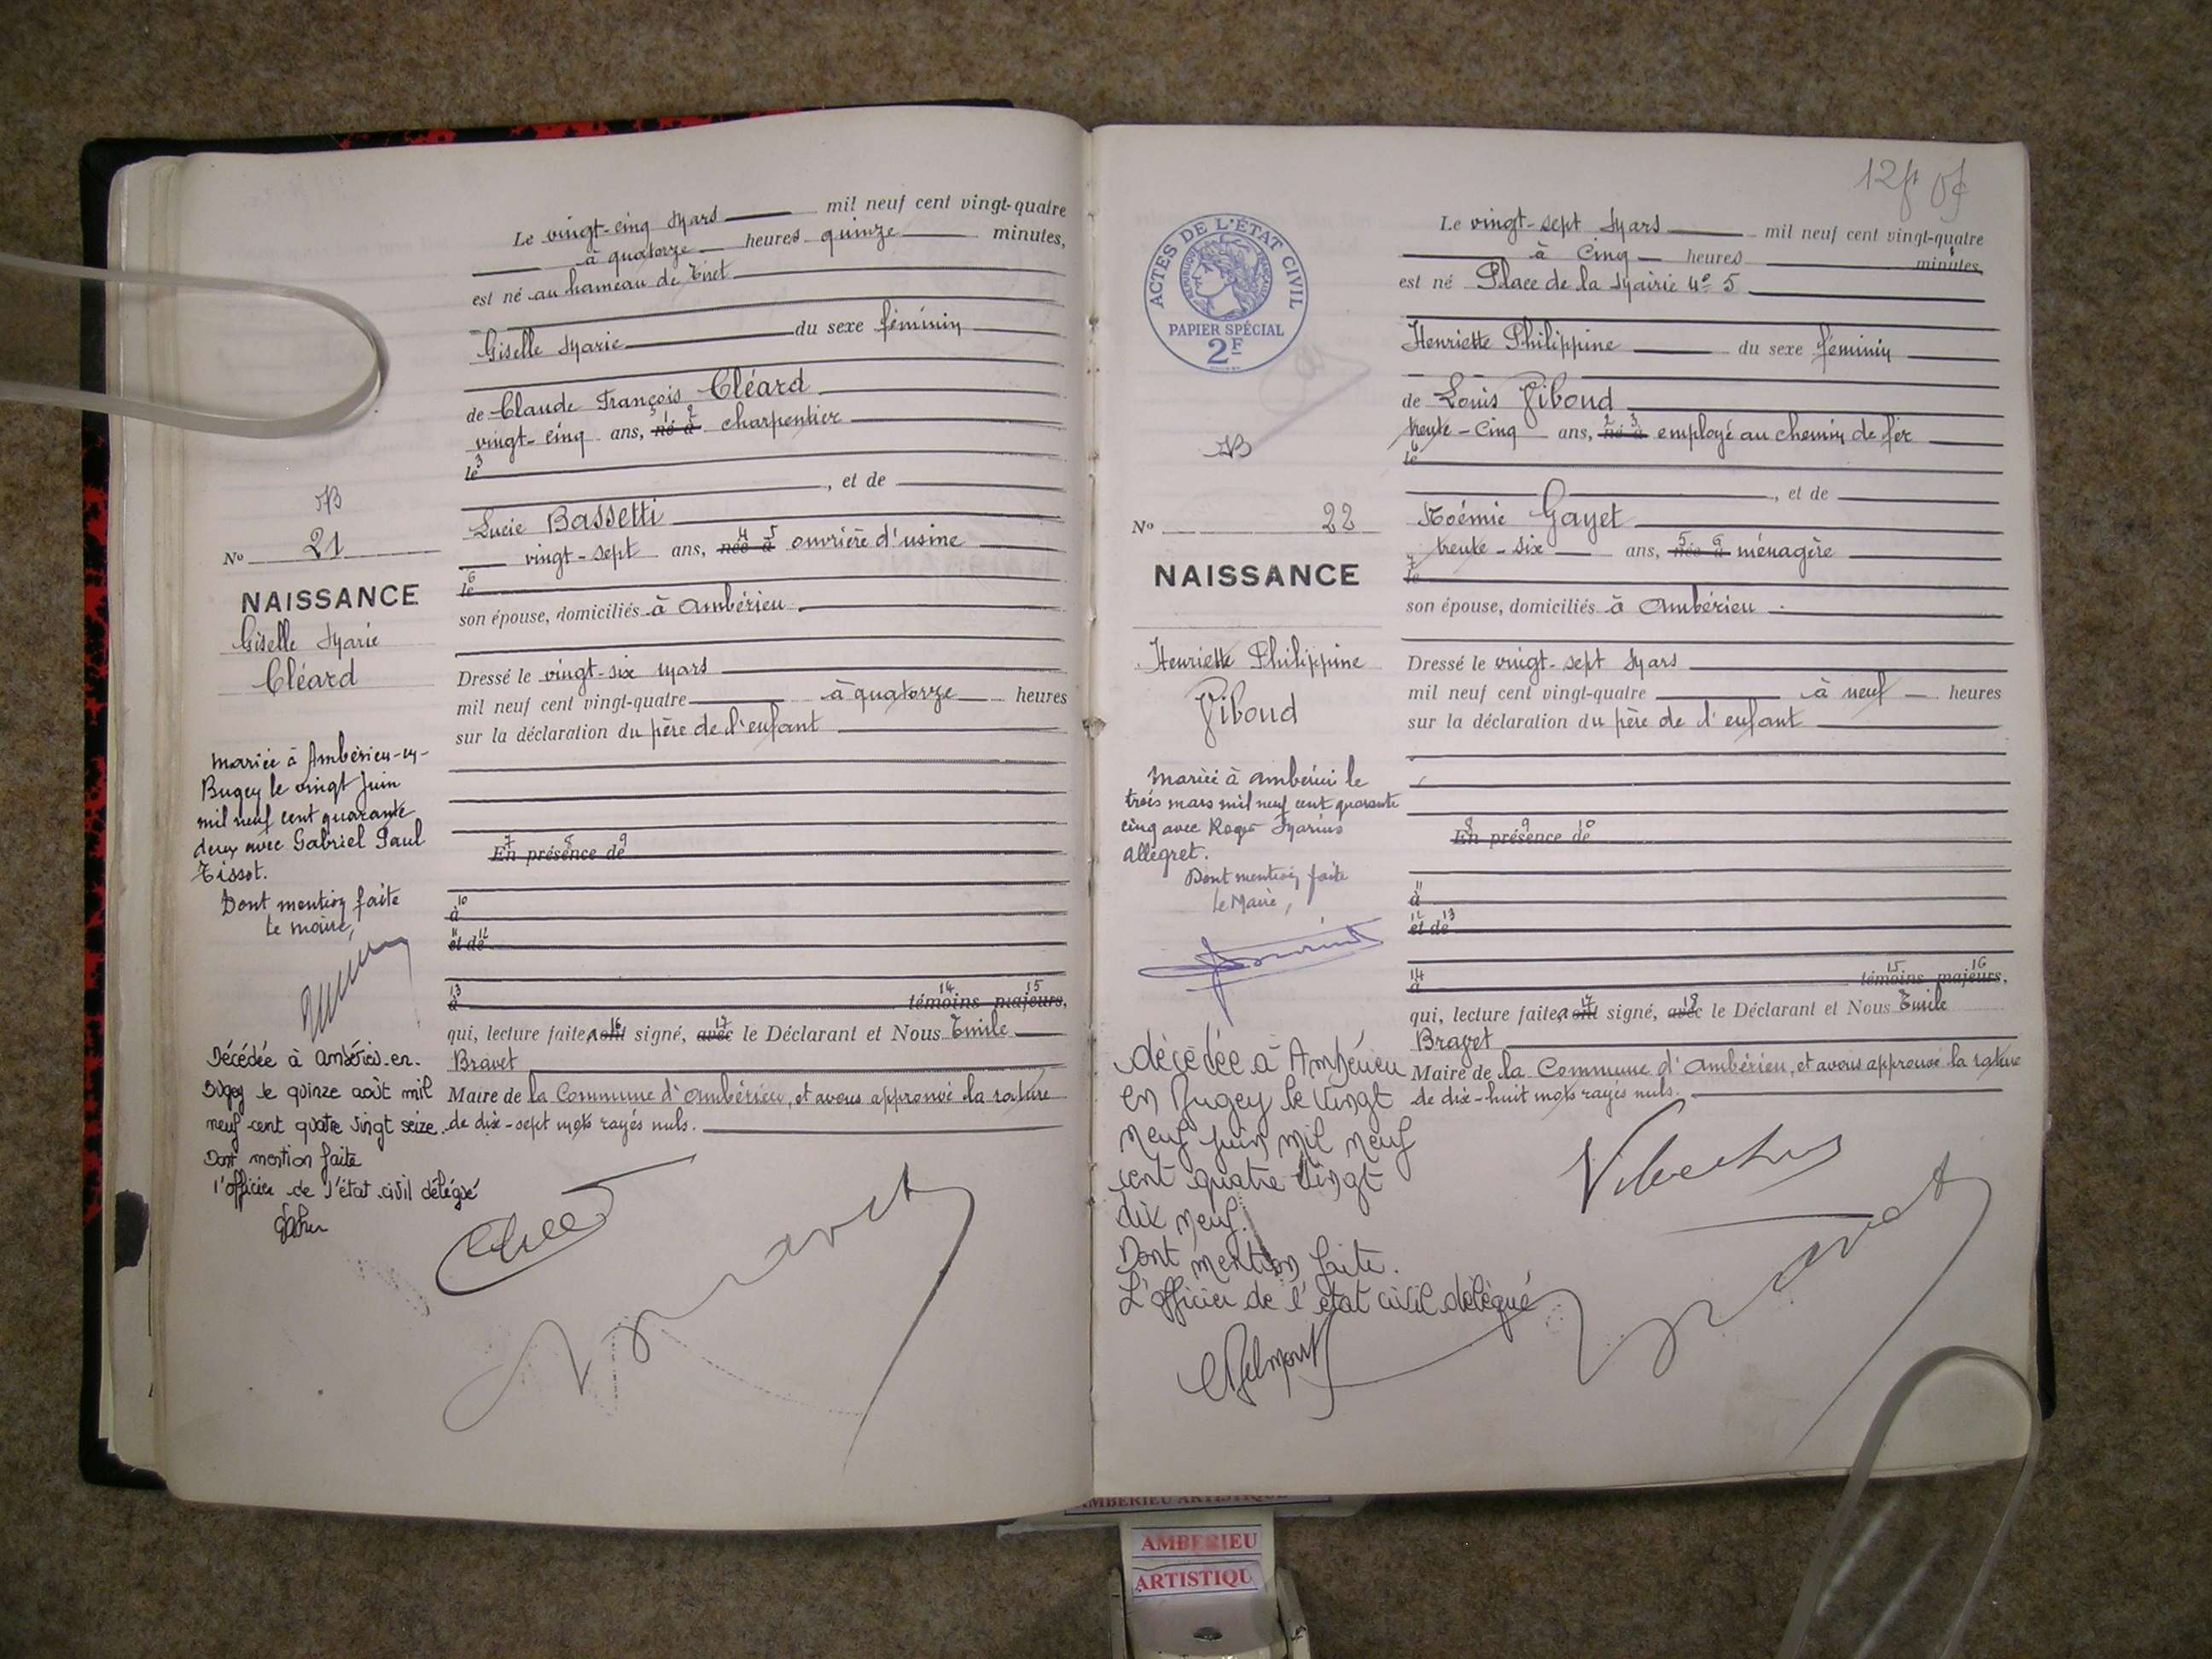 Le vingt-cinq Mars mil neuf cent vingt-quatre
à quatorze heures quinze minutes,
est né au hameau de Tiret
Giselle Marie du sexe féminin
de Claude François Cléard
vingt-cinq ans, né à charpentier
le
, et de
Lucie Bassetti
vingt-sept ans, née à ouvrière d'usine
le
son épouse, domiciliés à Ambérieu.
Dressé le vingt-six mars
mil neuf cent vingt-quatre à quatorze heures
sur la déclaration du père de l'enfant
En présence de
à
et de
à témoins majeurs,
qui, lecture faite, a ont signé, avec le Déclarant et Nous Emile
Bravet
Maire de la Commune d'Ambérieu, et avons approuvé la rature
de dix-sept mots rayés nuls.
Bravet
N° 21
NAISSANCE
Giselle Marie
Cléard
Mariée à Ambérieu-en-
Bugey le vingt Juin
mil neuf cent quarante
deux avec Gabriel Paul
Tissot.
Dont mention faite
Le maire,
Décédée à Ambérieu-en-
Bugey le quinze août mil
neuf cent quatre vingt seize.
Dont mention faite
l'officier de l'état civil délégué
12
ACTES DE L'ÉTAT CIVIL
RÉPUBLIQUE FRANÇAISE
PAPIER SPÉCIAL
2F
Le vingt-sept Mars mil neuf cent vingt-quatre
à Cinq heures minutes,
est né Place de la Mairie N° 5
Henriette Philippine du sexe féminin
de Louis Viboud
trente-Cinq ans, né à employé au chemin de fer
le
, et de
Noémie Gayet
trente-six ans, née à ménagère
le
son épouse, domiciliés à Ambérieu.
Dressé le vingt-sept Mars
mil neuf cent vingt-quatre à neuf heures
sur la déclaration du père de l'enfant
En présence de
à
et de
à témoins majeurs,
qui, lecture faite, a ont signé, avec le Déclarant et Nous Emile
Bravet
Maire de la Commune d'Ambérieu, et avons approuvé la rature
de dix-huit mots rayés nuls.
Bravet
N° 22
NAISSANCE
Henriette Philippine
Viboud
Mariée à Ambérieu le
trois mars mil neuf cent quarante
cinq avec Roger Marius
Allegret.
Dont mention faite
Le Maire,
décédée à Ambérieu
en Bugey le vingt
neuf juin mil neuf
cent quatre vingt
dix neuf.
Dont mention faite.
L'officier de l'état civil délégué
AMBERIEU ARTISTIQUE
AMBERIEU
ARTISTIQU